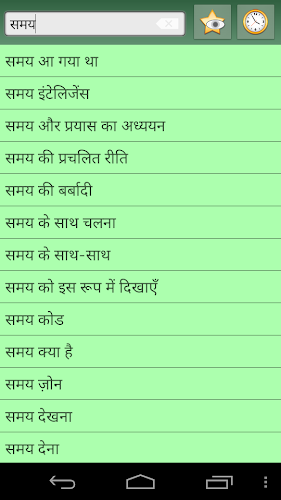 समय
समय आ गया था
समय इंटेलिजेंस
समय और प्रयास का अध्ययन
समय की प्रचलित रीति
समय की बर्बादी
समय के साथ चलना
समय के साथ-साथ
समय को इस रूप में दिखाएँ
समय कोड
समय क्या है
समय ज़ोन
समय देखना
समय देना